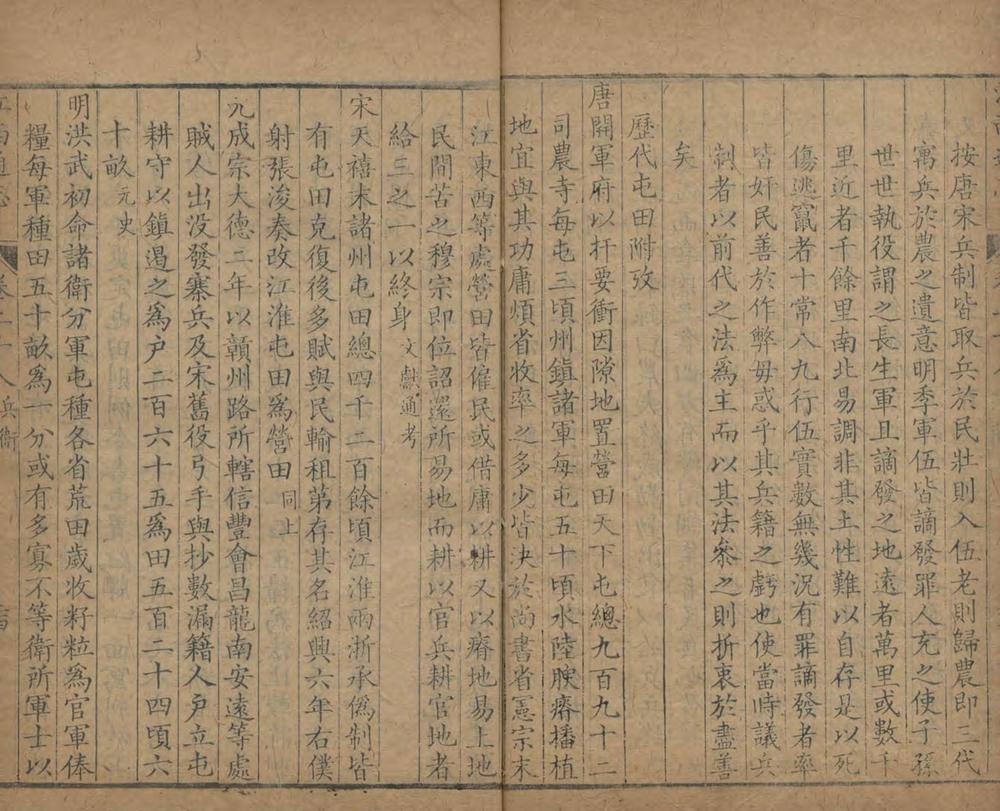 按唐宋兵制皆取兵於民壯則入伍老則歸農即三代
寓兵於農之遺意明季軍伍皆謫發罪人充之使子孫
世世執役謂之長生軍且謫發之地遠者萬里或數千
里近者千餘里南北易調非其土性難以自存是以死
傷逃竄者十常八九行伍實數無幾況有罪謫發者率
皆奸民善於作弊毋惑乎其兵籍之虧也使當時議兵
制者以前代之法為主而以其法叅之則折衷於盡善
矣
歷代屯田附攷
唐開軍府以扞要衝因隙地置營田天下屯總九百九十二
司農寺每屯三頃州鎮諸軍每屯五十頃水陸腴瘠播植
地宜與其功庸煩省收率之多少皆決於尚書省憲宗末
江東西等處營田皆僱民或借庸以耕又以瘠地易上地
民間苦之穆宗即位詔還所易地而耕以官兵耕官地者
給三之一以終身文獻通考
宋天禧末諸州屯田總四千二百餘頃江淮兩浙承偽制皆
有屯田克復後多賦與民輸租第存其名紹興六年右僕
射張浚奏改江淮屯田為營田同上
元成宗大德二年以贛州路所轄信豐會昌龍南安遠等處
賊人出没發寨兵及宋舊役弓手與抄數漏籍人户立屯
耕守以鎮遏之為户二百六十五為田五百二十四頃六
十畝元史
明洪武初命諸衛分軍屯種各省荒田歲收籽粒為官軍俸
糧每軍種田五十畝為一分或有多寡不等衛所軍士以
通志 卷二十八 兵衛